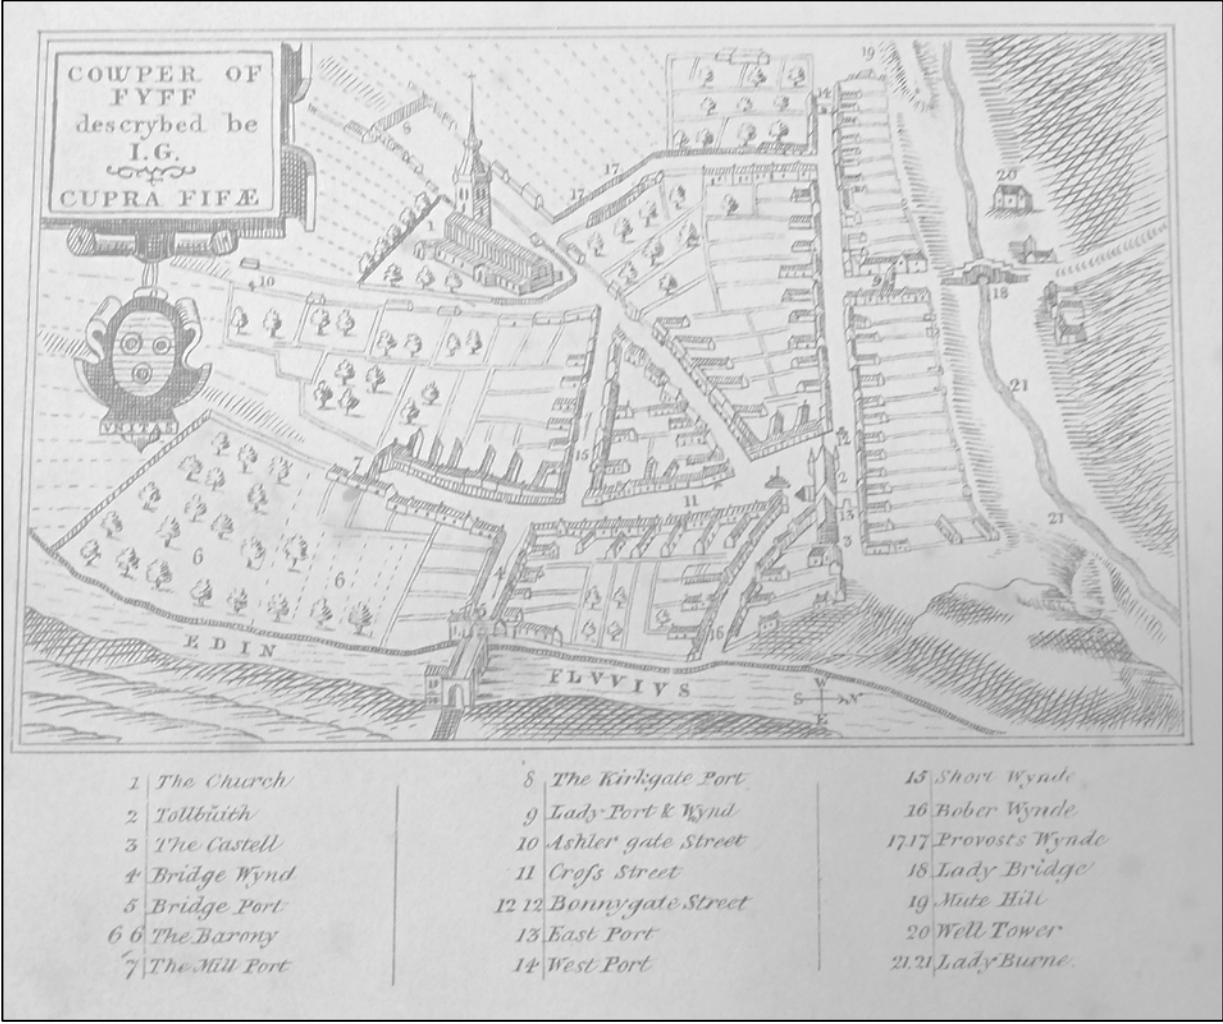 COWPER OF
FYFF
descrybed be
I.G.
CUPRA FIFÆ
VNITAS
19
14
8
17
17
20
1
10
9
18
21
7
15
12
2
11
13
21
3
6
6
4
5
16
EDIN
FLVVIVS
W
S N
E
1 The Church
2 Tollbuith
3 The Castell
4 Bridge Wynd
5 Bridge Port
6 6 The Barony
7 The Mill Port
8 The Kirkgate Port
9 Lady Port & Wynd
10 Ashler gate Street
11 Croſs Street
12 12 Bonnygate Street
13 East Port
14 West Port
15 Short Wynde
16 Bober Wynde
17 17 Provosts Wynde
18 Lady Bridge
19 Mute Hill
20 Well Tower
21.21 Lady Burne.